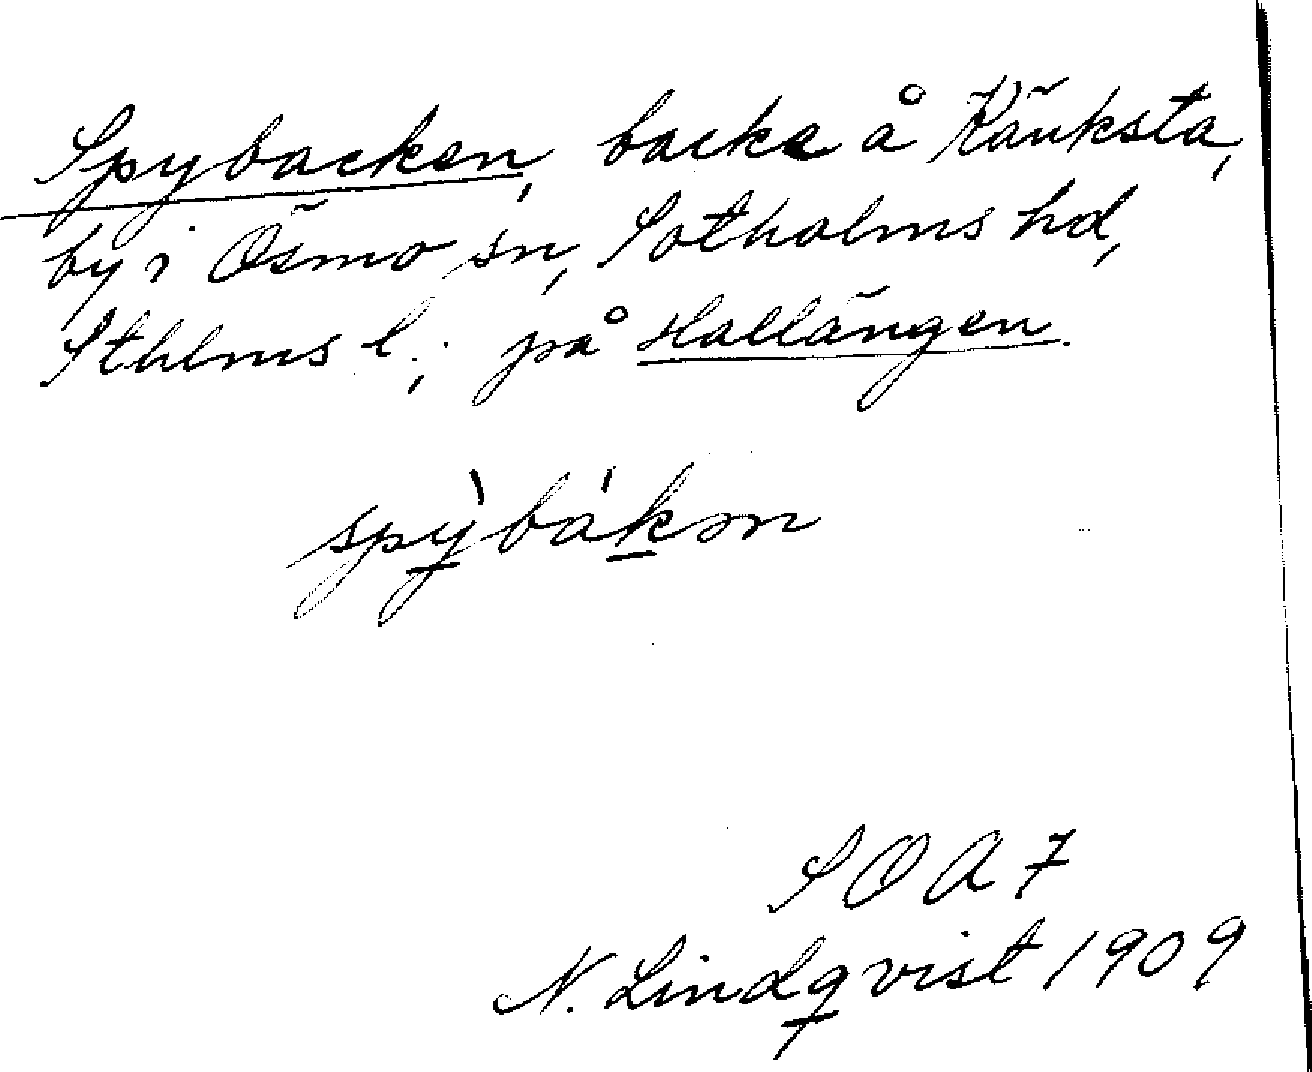 Spybacken, backe å Känksta,
by i Ösmo sn, Sotholms hd,
Sthlms l.; på Hallängen.
spỳbákən
SOA 7
N. Lindqvist 1909